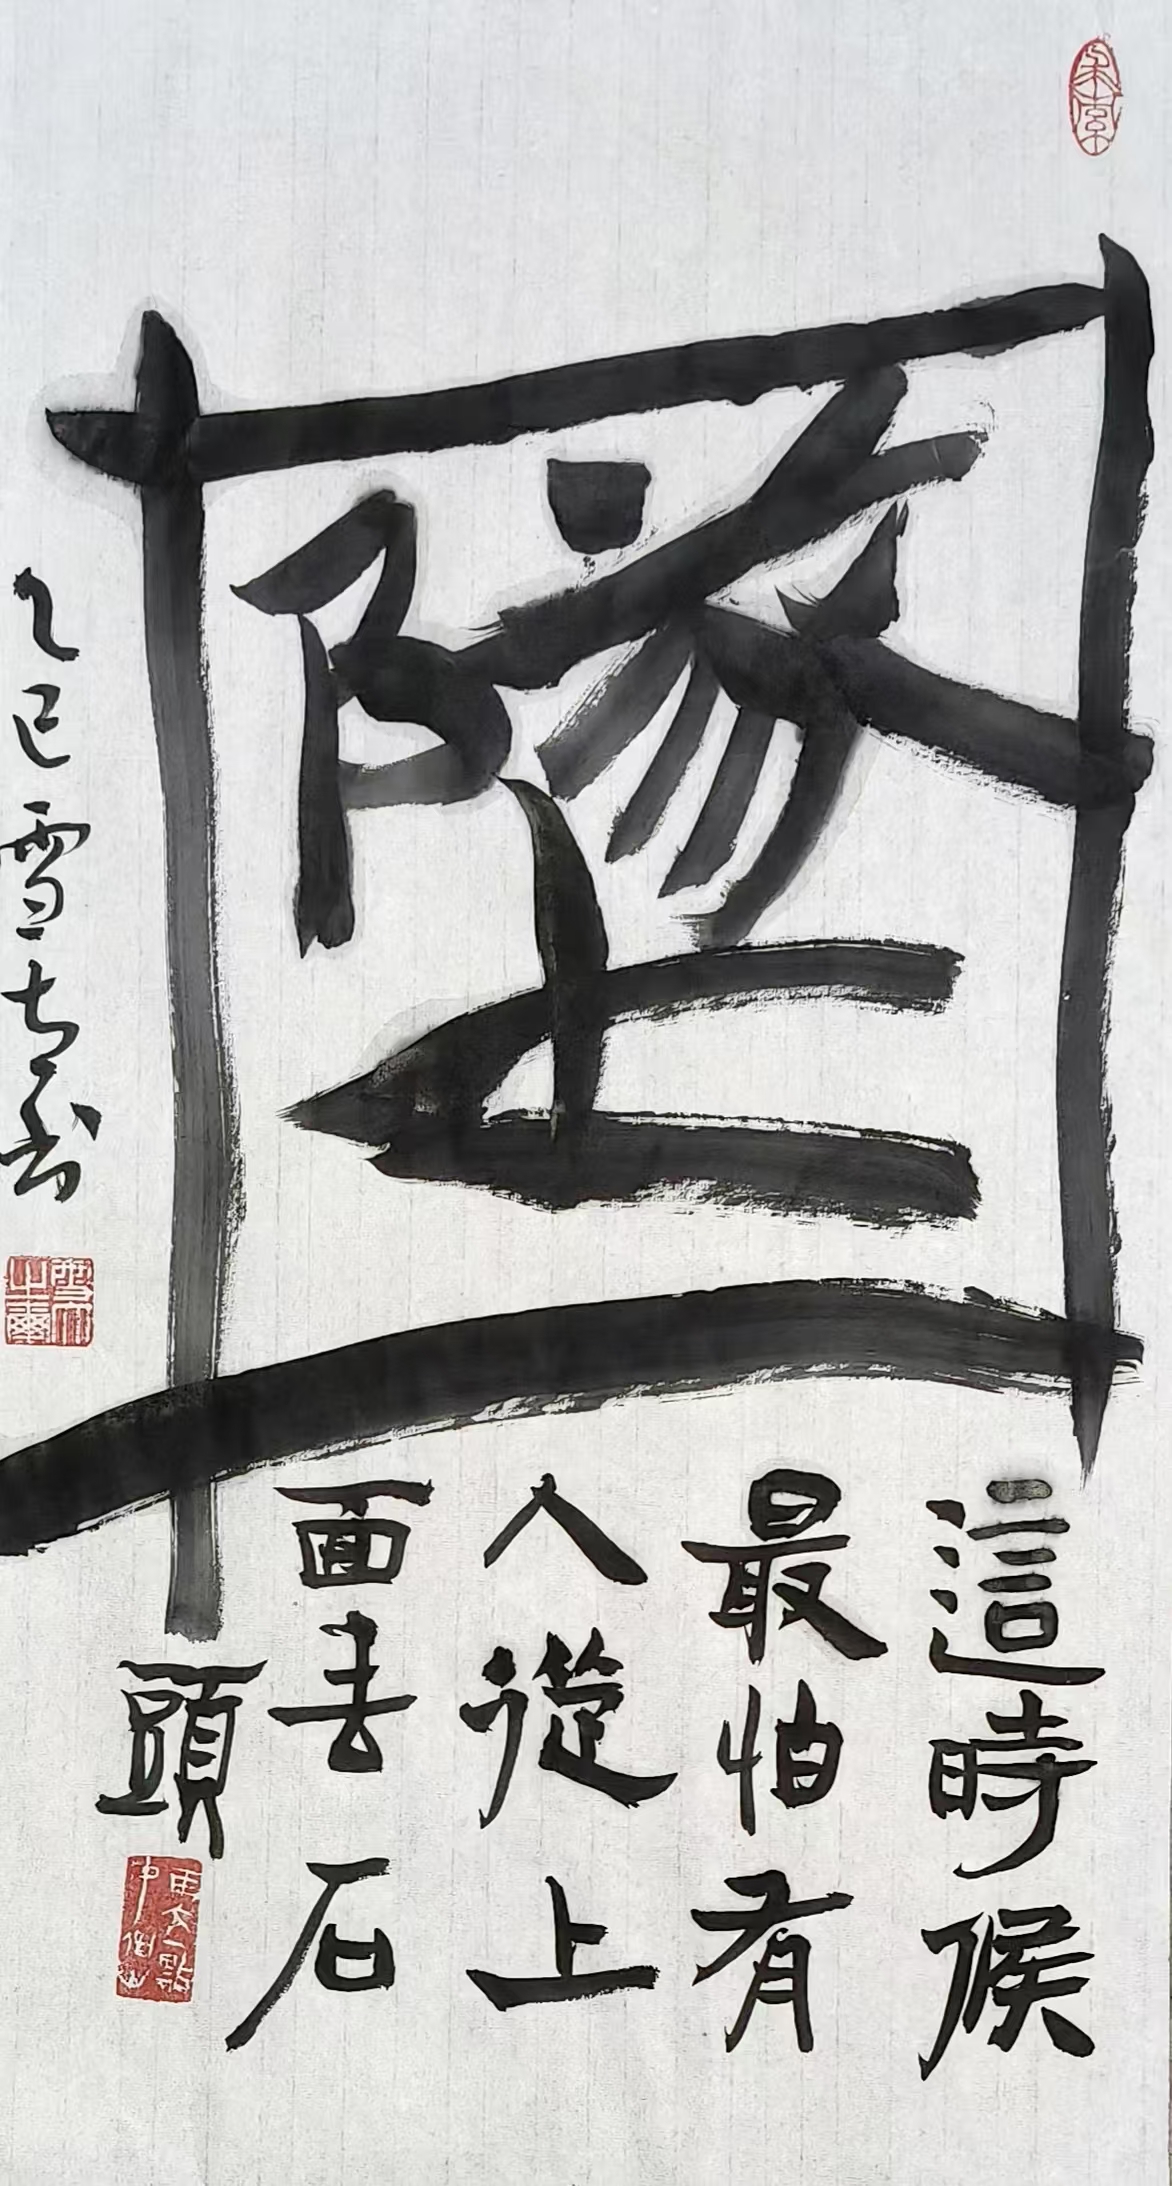 墜
這時候
最怕有
人從上
面丟石
頭
乙巳雪